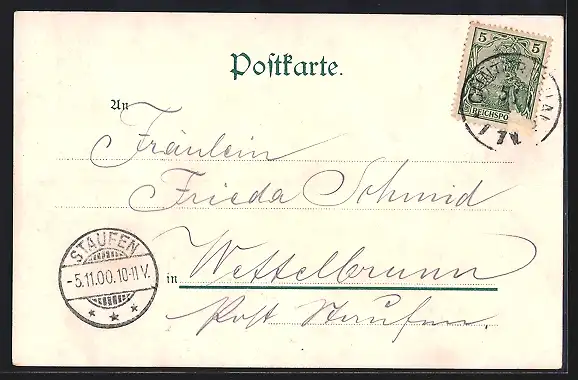 Postkarte.
5 5
REICHSPO
An
Fräulein
Frieda Schmid
STAUFEN
-5.11.00.10-11V.
in Wettelbrunn
Post Staufen.